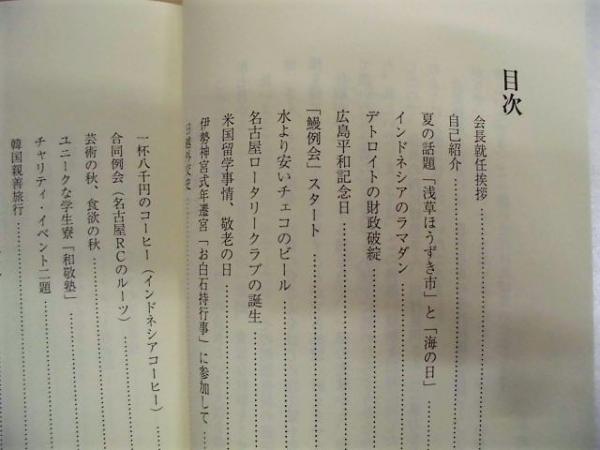 目次
会長就任挨拶
自己紹介
夏の話題「浅草ほうずき市」と「海の日」
インドネシアのラマダン
デトロイトの財政破綻
広島平和記念日
「鰻例会」スタート
水より安いチェコのビール
名古屋ロータリークラブの誕生
米国留学事情、敬老の日
伊勢神宮式年遷宮「お白石持行事」に参加して
一杯八千円のコーヒー（インドネシアコーヒー）
合同例会（名古屋RCのルーツ）
芸術の秋、食欲の秋
ユニークな学生寮「和敬塾」
チャリティ・イベント二題
韓国親善旅行